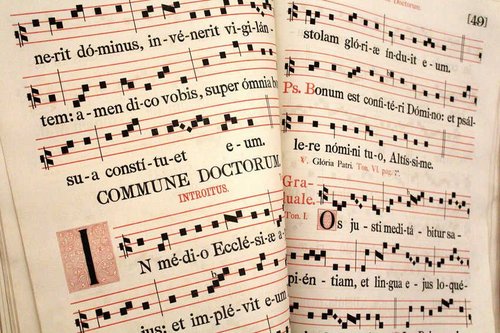 ne-rit dó-minus, in-vé-nerit vi-gi-lán-
tem: a-men di-co vobis, super ómnia bo
su-a constí-tu-et e-um.
COMMUNE DOCTORUM
INTROITUS.
IN mé-di-o Ecclé-si-æ a-
jus: et im-plé-vit e-um
Doctorum.
[49]
stolam gló-ri-æ índu-it e-um.
Ps. Bonum est confi-té-ri Dómi-no: et psál-
le-re nómi-ni tu-o, Al-tís-si-me.
V. Gloria Patri. Ton. VI. pag. 7*.
Gra-
duale.
Ton. I.
Os ju-sti medi-tá-bitur sa-
pi-én-tiam, et lin-gua e-jus lo-qué-